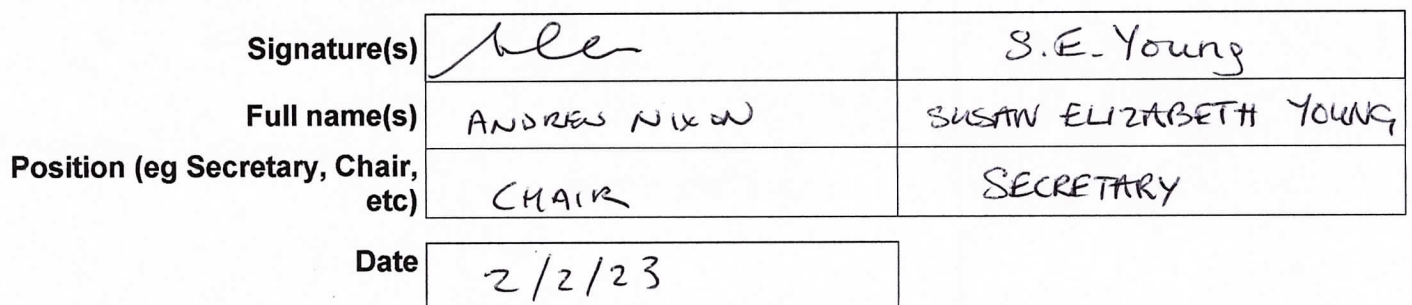 Signature(s) S.E. Young
Full name(s) ANDREW NIXON SUSAN ELIZABETH YOUNG
Position (eg Secretary, Chair,
etc) CHAIR SECRETARY
Date 2/2/23